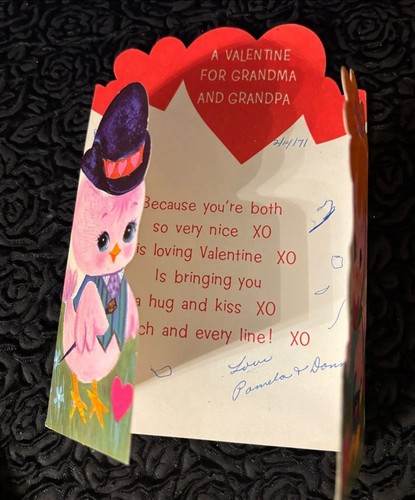 A VALENTINE
FOR GRANDMA
AND GRANDPA
Because you're both
so very nice XO
is loving Valentine XO
Is bringing you
a hug and kiss XO
ch and every line! XO
Love
Pamela &